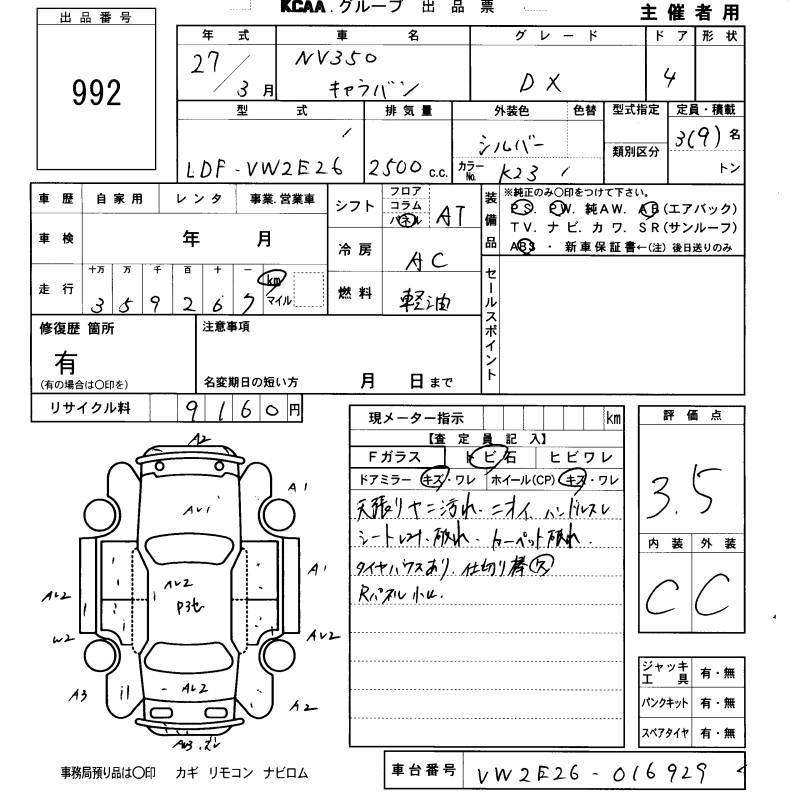 KCAA.グループ 出品票
主催者用
出品番号
992
年式 車名 グレード ドア 形状
27/3月 NV350 キャラバン DX 4
型式 排気量 外装色 色替 型式指定 定員・積載
LDF-VW2E26 2500c.c. シルバー カラーNo. K23 類別区分 3(9)名 トン
車歴 自家用 レンタ 事業.営業車
車検 年 月
走行 十万 万 千 百 十 一 km マイル
359267
シフト フロア コラム パネル AT
冷房 AC
燃料 軽油
装備品 ※純正のみ○印をつけて下さい。
PS. PW. 純AW. AB(エアバック)
TV. ナビ. カワ. SR(サンルーフ)
ABS ・ 新車保証書←(注) 後日送りのみ
セールスポイント
修復歴 箇所
有
(有の場合は○印を)
注意事項
名変期日の短い方 月 日まで
リサイクル料 9160円
現メーター指示 km
【査定員記入】
Fガラス トビ石 ヒビワレ
ドアミラー キズ・ワレ ホイール(CP) キズ・ワレ
天張りヤニ汚れ. ニオイ. ハンドルスレ
シート 破れ. カーペット破れ.
タイヤハウスあり. 仕切り棒欠
Rパネル小凹
評価点
3.5
内装 外装
C C
ジャッキ工具 有・無
パンクキット 有・無
スペアタイヤ 有・無
A2
A1
AU1
A1
AU2
AU2
P3セ
W2
AU2
A3
AU2
A2
事務局預り品は○印 カギ リモコン ナビロム
車台番号 VW2E26-016929